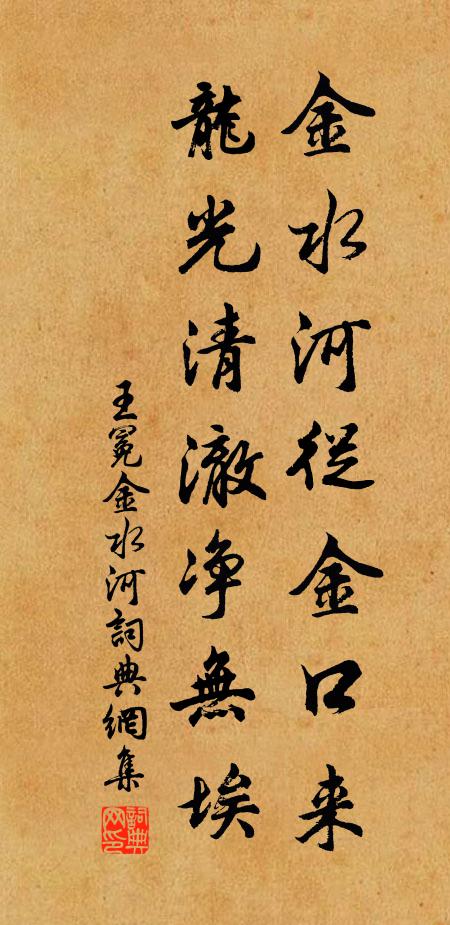 金水河從金口来
龍光清澈净無埃
王冕金水河詞典網集
詞典網印